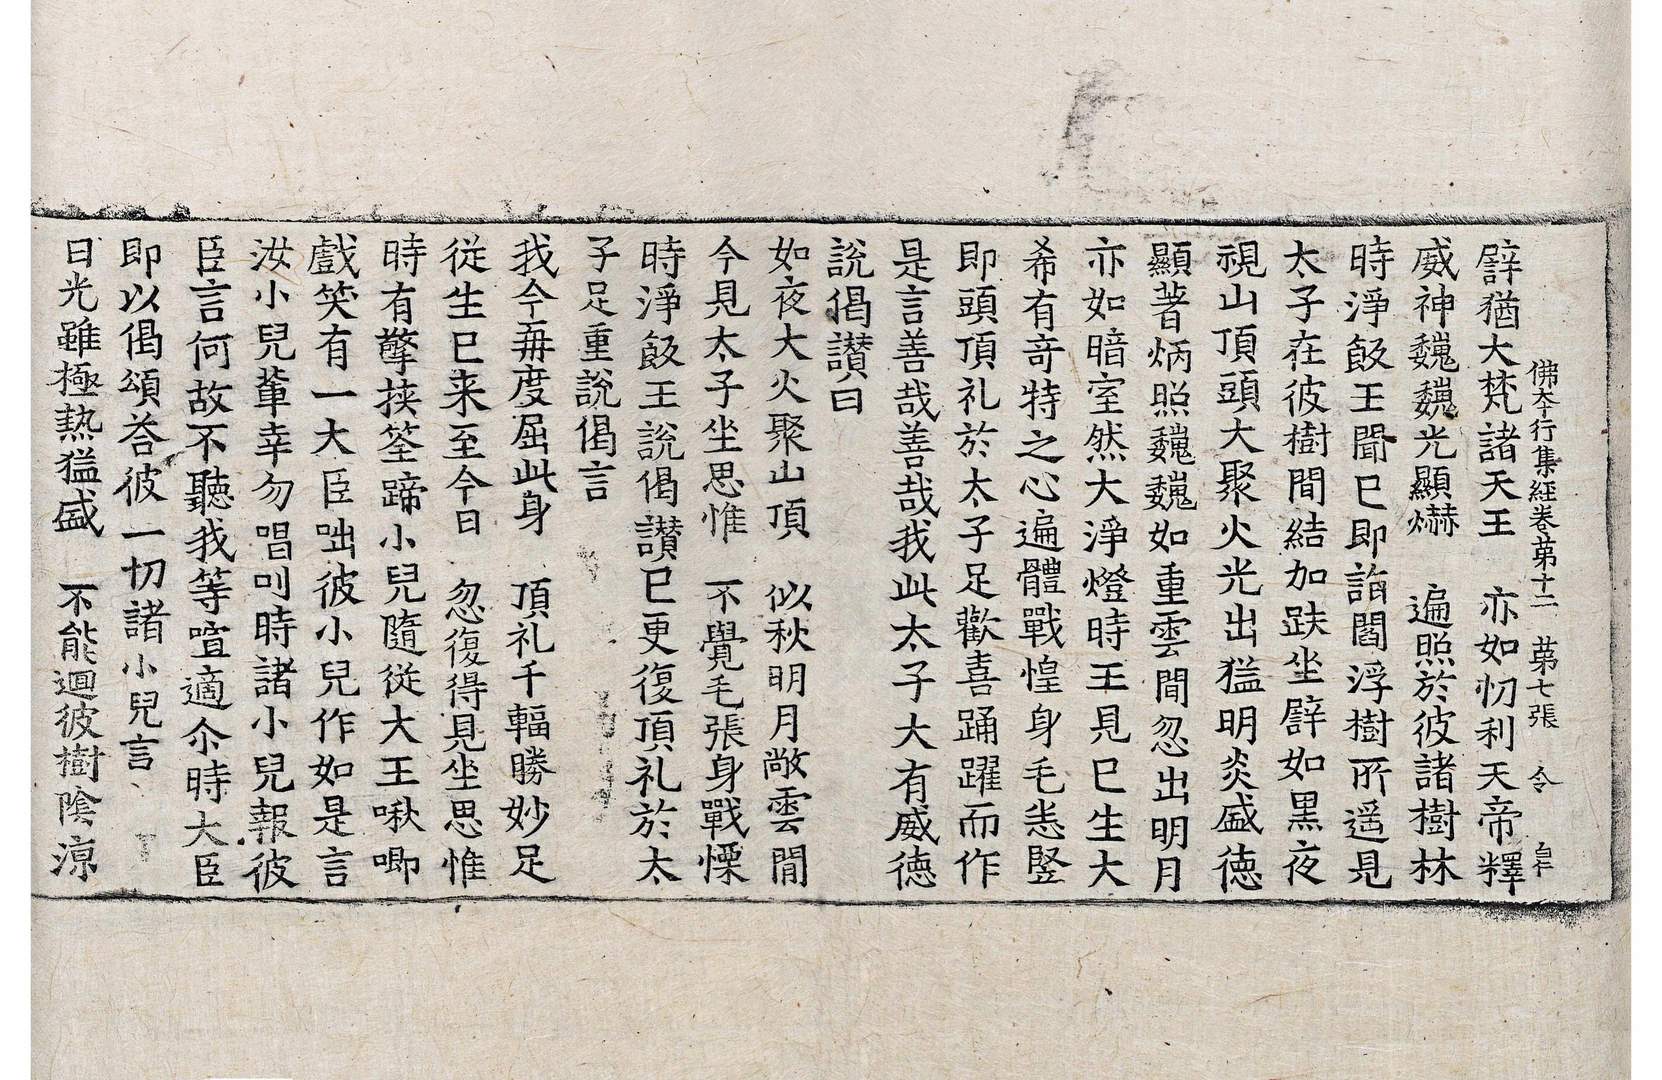 佛夲行集經卷苐十二　苐七張　令　自仁
譬猶大梵諸天王　亦如忉利天帝釋
威神巍巍光顯爀　遍照於彼諸樹林
時淨飯王聞已即詣閻浮樹所遥見
太子在彼樹間結加趺坐譬如黒夜
視山頂頭大聚火光出猛明炎盛徳
顯著炳照巍巍如重雲間忽出明月
亦如暗室然大淨燈時王見已生大
希有奇特之心遍體戰惶身毛恚竪
即頭頂礼於太子足歡喜踊躍而作
是言善哉善哉我此太子大有威徳
說偈讃曰
如夜大火聚山頂　似秋明月敞雲間
今見太子坐思惟　不覺毛張身戰慄
時淨飯王說偈讃已更復頂礼於太
子足重說偈言
我今再度屈此身　頂礼千輻勝妙足
従生已来至今日　忽復得見坐思惟
時有擎挟筌蹄小兒隨従大王啾唧
戲笑有一大臣咄彼小兒作如是言
汝小兒輩幸勿唱叫時諸小兒報彼
臣言何故不聽我等喧適尒時大臣
即以偈頌荅彼一切諸小兒言
日光雖極熱猛盛　不能迴彼樹陰涼